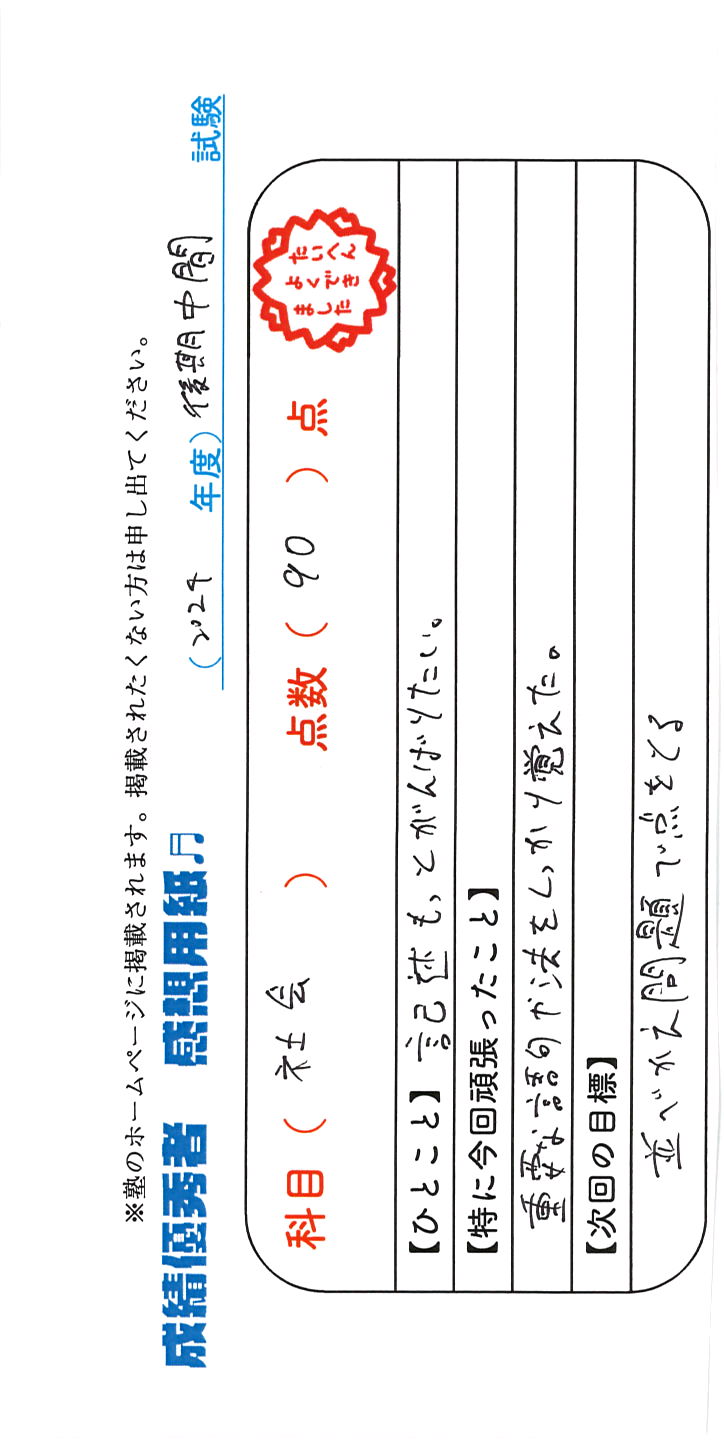 ※塾のホームページに掲載されます。掲載されたくない方は申し出てください。
成績優秀者 感想用紙♬
(2024 年度) 後期中間 試験
科目 ( 社会 ) 点数 ( 90 ) 点
たいへん
よくでき
ました
【ひとこと】 記述も、とがんばりたい。
【特に今回頑張ったこと】
重要な語句や法をしっかり覚えた。
【次回の目標】
並べかえ問題で点をとる